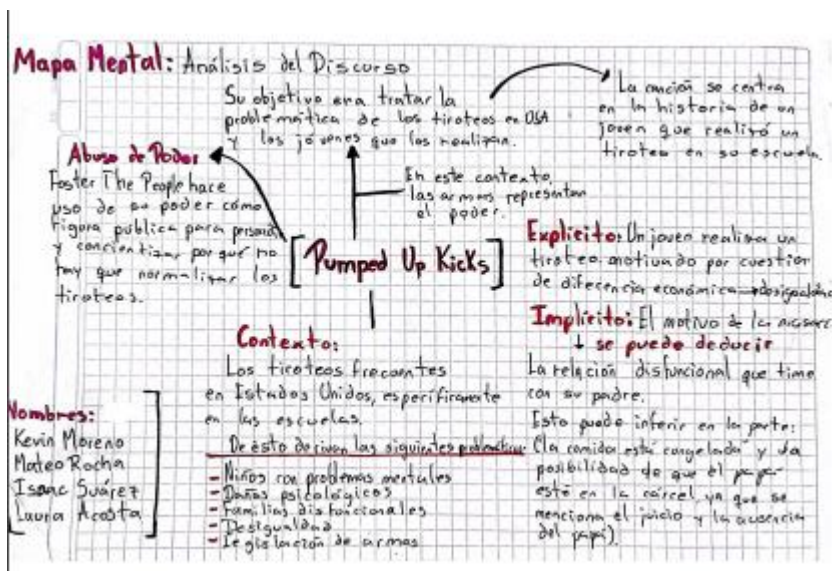 Mapa Mental: Análisis del Discurso
Su objetivo era tratar la
problemática de los tiroteos en USA
y los jóvenes que los realizan.
La canción se centra
en la historia de un
joven que realizó un
tiroteo en su escuela.
Abuso de Poder
Foster The People hace
uso de su poder cómo
figura pública para
y concientizar por qué no
hay que normalizar los
tiroteos.
En este contexto
las armas representan
el poder.
[Pumped Up Kicks]
Explícito: Un joven realiza un
tiroteo motivado por cuestion
de diferencia económica
Implícito: El motivo de la
se puede deducir
La relación disfuncional que tiene
con su padre.
Esto puede inferir en la parte:
(la comida está congelada y da
posibilidad de que el papá
esté en la cárcel ya que se
menciona el juicio y la ausencia
del papá).
Contexto:
Los tiroteos frecuentes
en Estados Unidos, específicamente
en las escuelas.
De ésto derivan las siguientes
- Niños con problemas mentales
- Daños psicológicos
- Familias disfuncionales
- Desigualdad
- Legislación de armas
Nombres:
Kevin Moreno
Mateo Rocha
Isaac Suárez
Laura Acosta